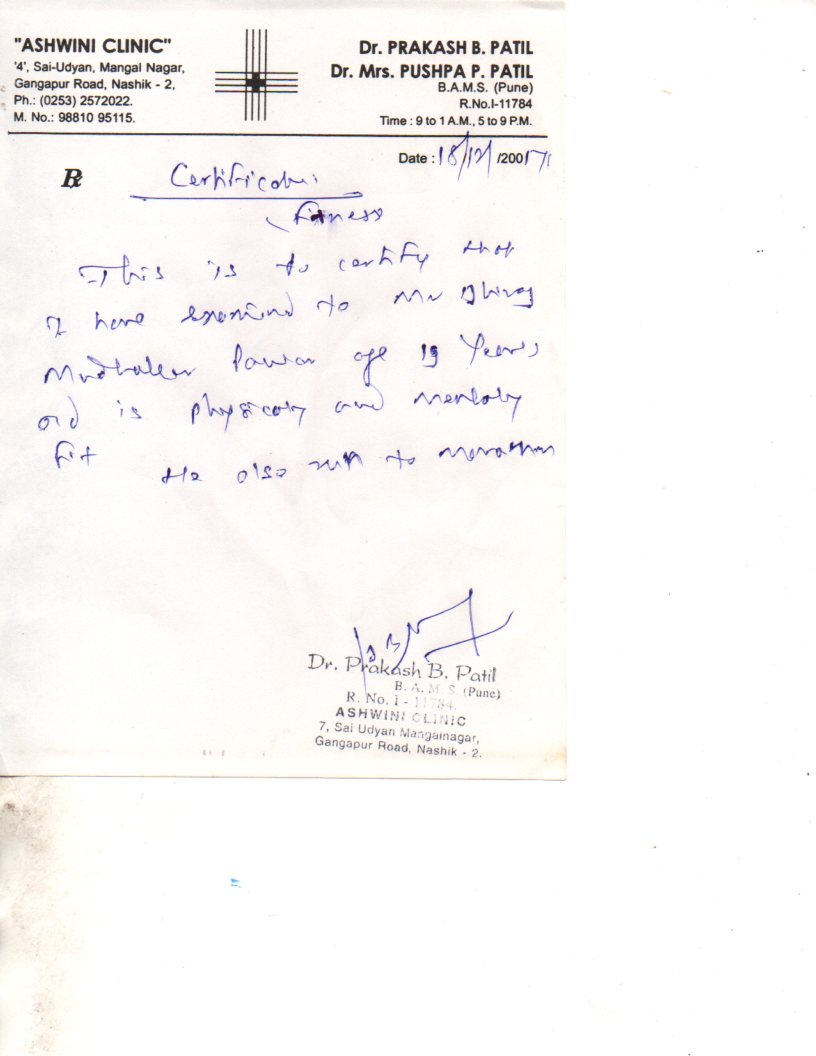 "ASHWINI CLINIC"
'4', Sai-Udyan, Mangal Nagar,
Gangapur Road, Nashik - 2,
Ph.: (0253) 2572022.
M. No.: 98810 95115.
Dr. PRAKASH B. PATIL
Dr. Mrs. PUSHPA P. PATIL
B.A.M.S. (Pune)
R.No.I-11784
Time : 9 to 1 A.M., 5 to 9 P.M.
Date : 18/12/20017
℞ Certificate
Fitness
This is to certify that
I have examined to Mr Dhiraj
Pawar age 19 Years
old is physicaly and mentaly
fit He also run to marathon
Dr. Prakash B. Patil
B. A. M. S. (Pune)
R. No. I - 11784.
ASHWINI CLINIC
7, Sai Udyan Mangalnagar,
Gangapur Road, Nashik - 2.